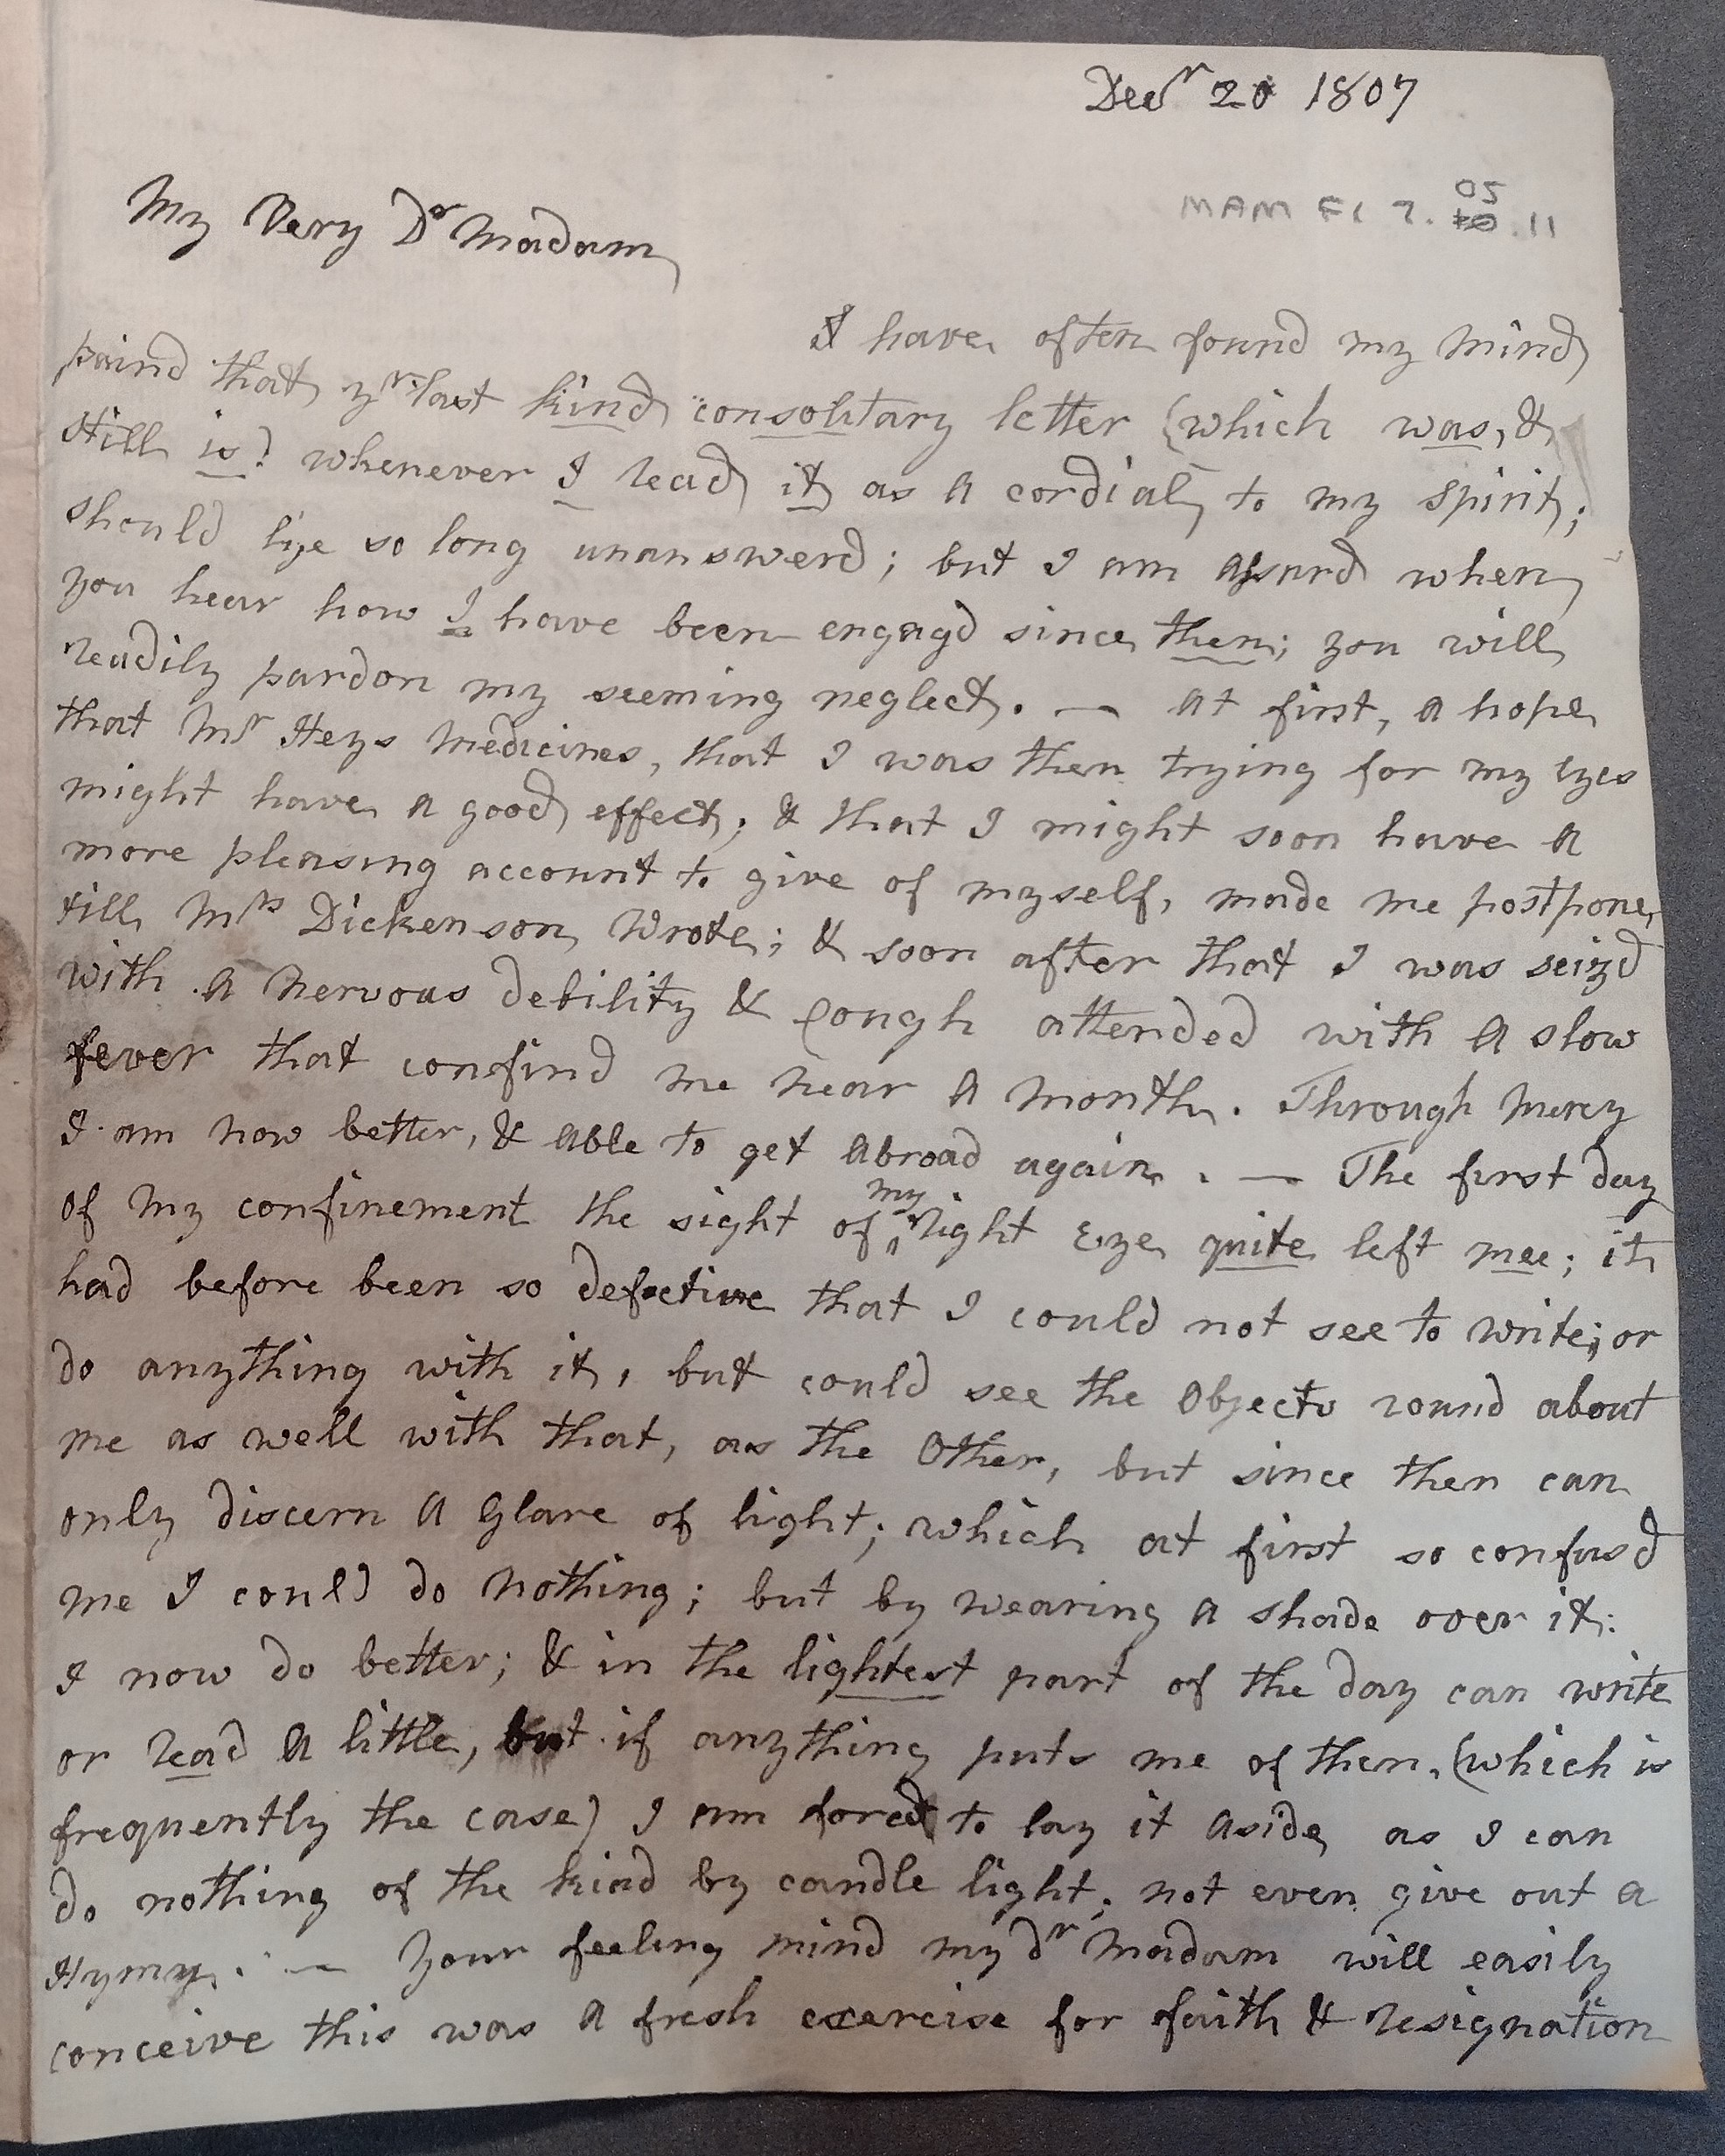 Decr 20 1807
MAM Fl 7. 05 .11
My Very Dr Madam
I have often found my mind
paind that yr last kind consolitary letter (which was, &
still is) whenever I read it as a cordial to my spirit;
should lye so long unanswerd; but I am assurd when
you hear how I have been engagd since then; you will
readily pardon my seeming neglect. — At first, a hope
that Mr Heys Medicines, that I was then trying for my Eyes
might have a good effect; & that I might soon have a
more pleasing account to give of myself, made me postpone
till Mrs Dickenson Wrote; & soon after that I was seizd
with a nervous debility & Cough attended with a slow
fever that confind me near a month. Through mercy
I am now better, & able to get abroad again. — The first day
of my confinement the sight of my right Eye quite left mee; it
had before been so defective that I could not see to write; or
do anything with it, but could see the Objects round about
me as well with that, as the Other, but since then can
only discern a Glare of light; which at first so confusd
me I could do nothing; but by wearing a shade over it:
I now do better; & in the lightest part of the day can write
or read a little, but if anything puts me of then, (which is
frequently the case) I am forcd to lay it aside as I can
do nothing of the kind by candle light; not even give out a
Hymn. — Your feeling mind my dr Madam will easily
conceive this was a fresh exercise for faith & resignation